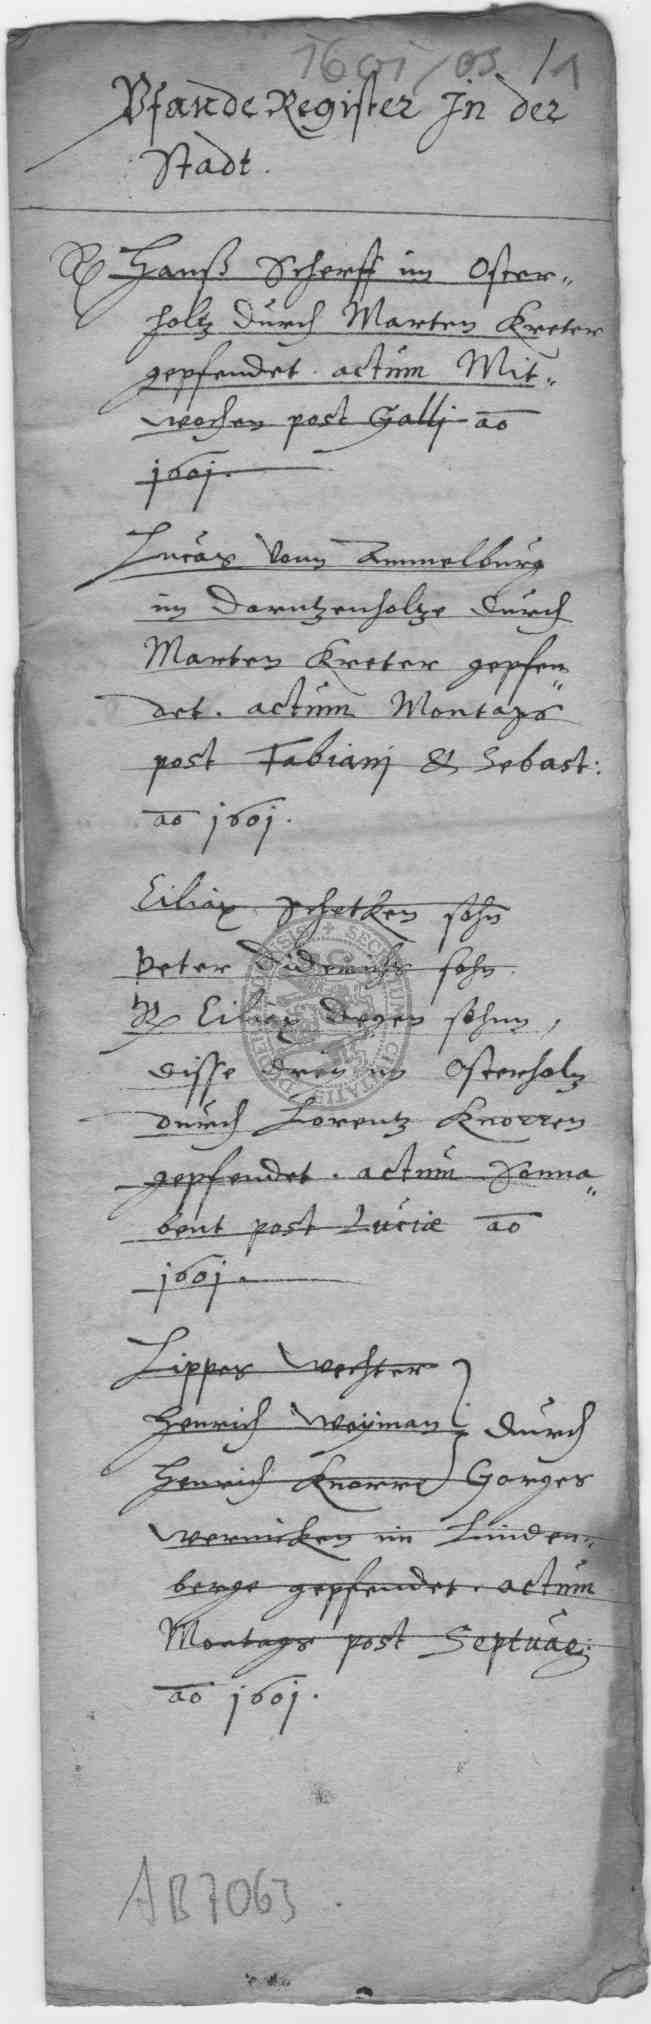 1601/03 /1
Pfande Register In der
Stadt.
Hanß Scherff im Oster„
holtz durch Marten Kreter
gepfendet. actum Mit„
wochen post Gallj ao
1601.
Lucas vonn Ammelburg
im Darntzenholtze durch
Marten Kreter gepfen„
det. actum Montags
post Fabianj & Sebast:
ao 1601.
Eiliax Schetken sohn
Peter Diderichs sohn.
Eiliax Degen sohnn,
disse drey im Osterholtz
durch Lorentz Knorren
gepfendet. actum Sonna„
bent post Luciæ ao
1601.
Lippes Wechter
Henrich Weyman durch
Henrich Knorre Gorges
Wernicken im Linden„
berge gepfendet. actum
Montags post Septuag:
ao 1601.
AB7063